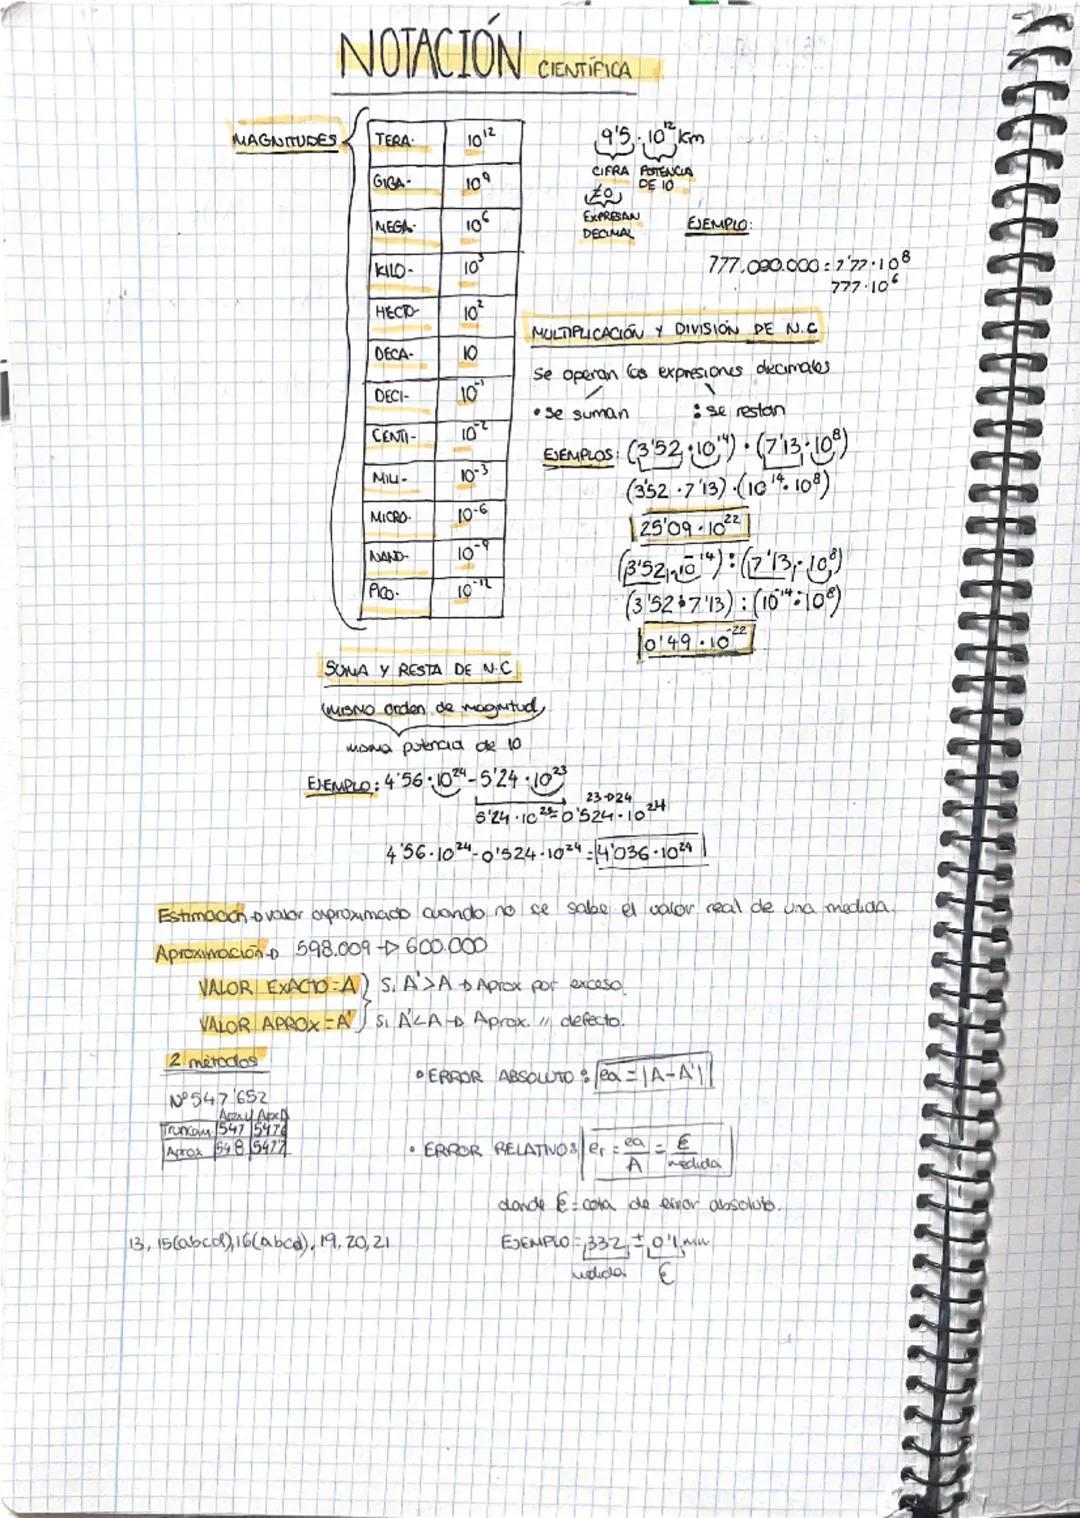 NOTACIÓN CIENTÍFICA
MAGNITUDES
TERA- 10¹²
GIGA- 10⁹
MEGA- 10⁶
KILO- 10³
HECTO- 10²
DECA- 10
DECI- 10⁻¹
CENTI- 10⁻²
MILI- 10⁻³
MICRO- 10⁻⁶
NANO- 10⁻⁹
PICO- 10⁻¹²
9'5 · 10¹² km
CIFRA POTENCIA
DE 10
≠0
EXPRESAN
DECIMAL
EJEMPLO:
777.000.000 = 7'77·10⁸
777·10⁶
MULTIPLICACIÓN Y DIVISIÓN DE N.C
Se operan las expresiones decimales
• se suman : se restan
EJEMPLOS: (3'52 · 10¹⁴) · (7'13 · 10⁸)
(3'52 · 7'13) · (10¹⁴ · 10⁸)
25'09 · 10²²
(3'52 · 10⁻¹⁴) : (7'13 · 10⁸)
(3'52 : 7'13) : (10⁻¹⁴ : 10⁸)
0'49 · 10⁻²²
SUMA Y RESTA DE N.C
(MISMO orden de magnitud)
misma potencia de 10
EJEMPLO: 4'56·10²⁴ - 5'24·10²³
23→24
5'24·10²³ = 0'524·10²⁴
4'56·10²⁴ - 0'524·10²⁴ = 4'036·10²⁴
Estimación → valor aproximado cuando no se sabe el valor real de una medida.
Aproximación → 598.009 → 600.000
VALOR EXACTO = A } Si A' > A → Aprox por exceso.
VALOR APROX = A' } Si A' < A → Aprox. // defecto.
2 métodos
• ERROR ABSOLUTO: ea = |A-A'|
Nº 547'652
Truncam. 547 5476
Aprox 548 5477
• ERROR RELATIVO: er = ea/A = ε/medida
donde ε = cota de error absoluto.
13, 15(abcd), 16(abcd), 19, 20, 21
EJEMPLO = 332 ± 0'1 mm
medida ε